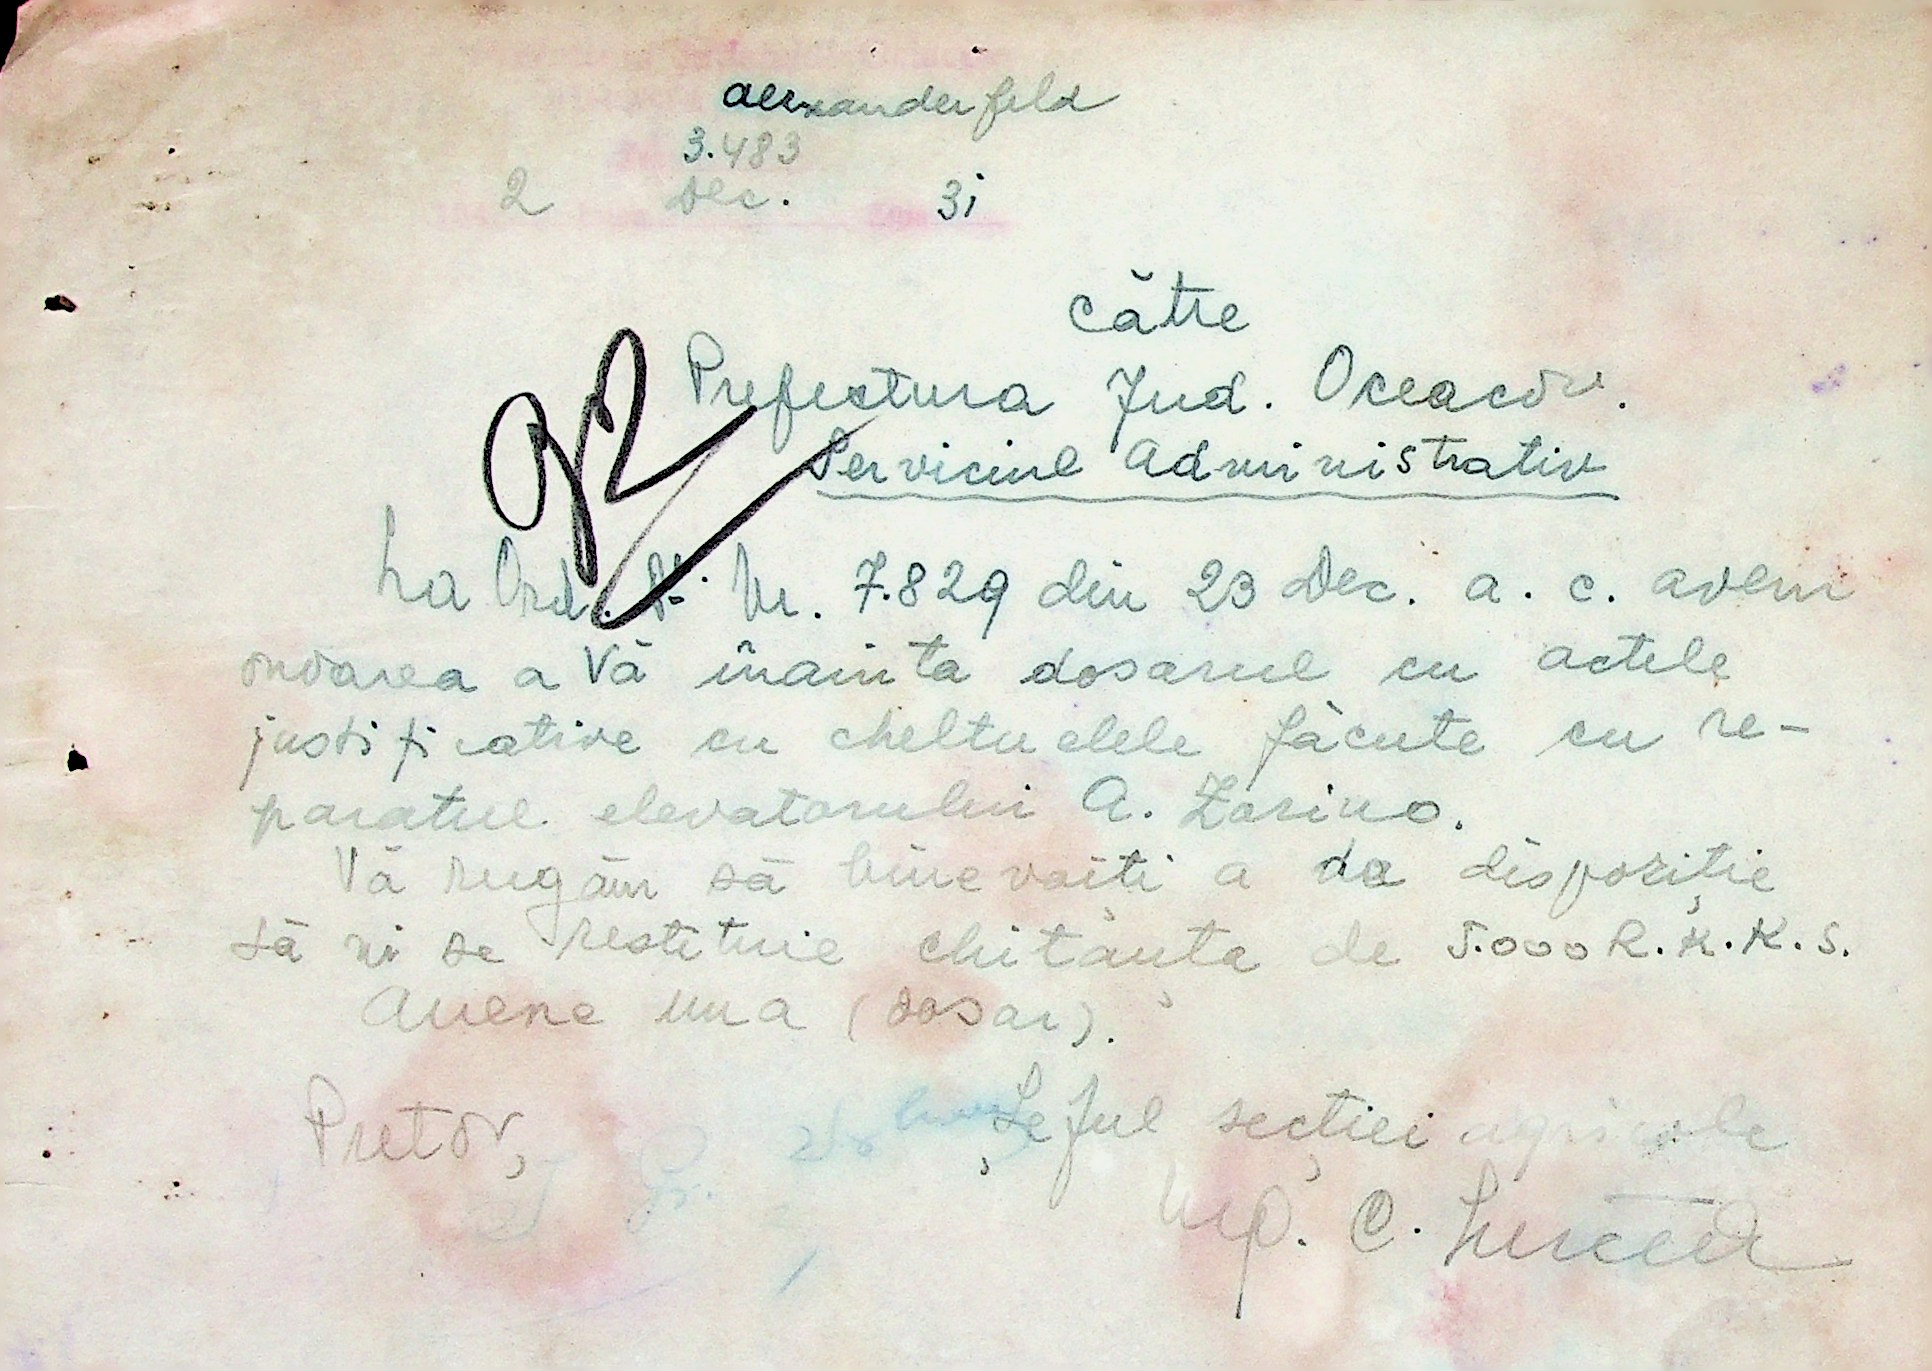 Alexanderfeld
3.483
2 Dec. 31
Către
Prefectura Jud. Oceacov.
Serviciul Administrativ
92
La Ord. Nr. 7.829 din 23 Dec. a. c. avem
onoarea a Vă înainta dosarul cu actele
justificative cu cheltuelele făcute cu re-
paratul elevatorului A. Zorino.
Vă rugăm să binevoiți a da dispoziție
să ni se restituie chitanța de 5.000 R.K.K.S.
Anexe una (dosar).
Pretor, Șeful secției agricole
C.